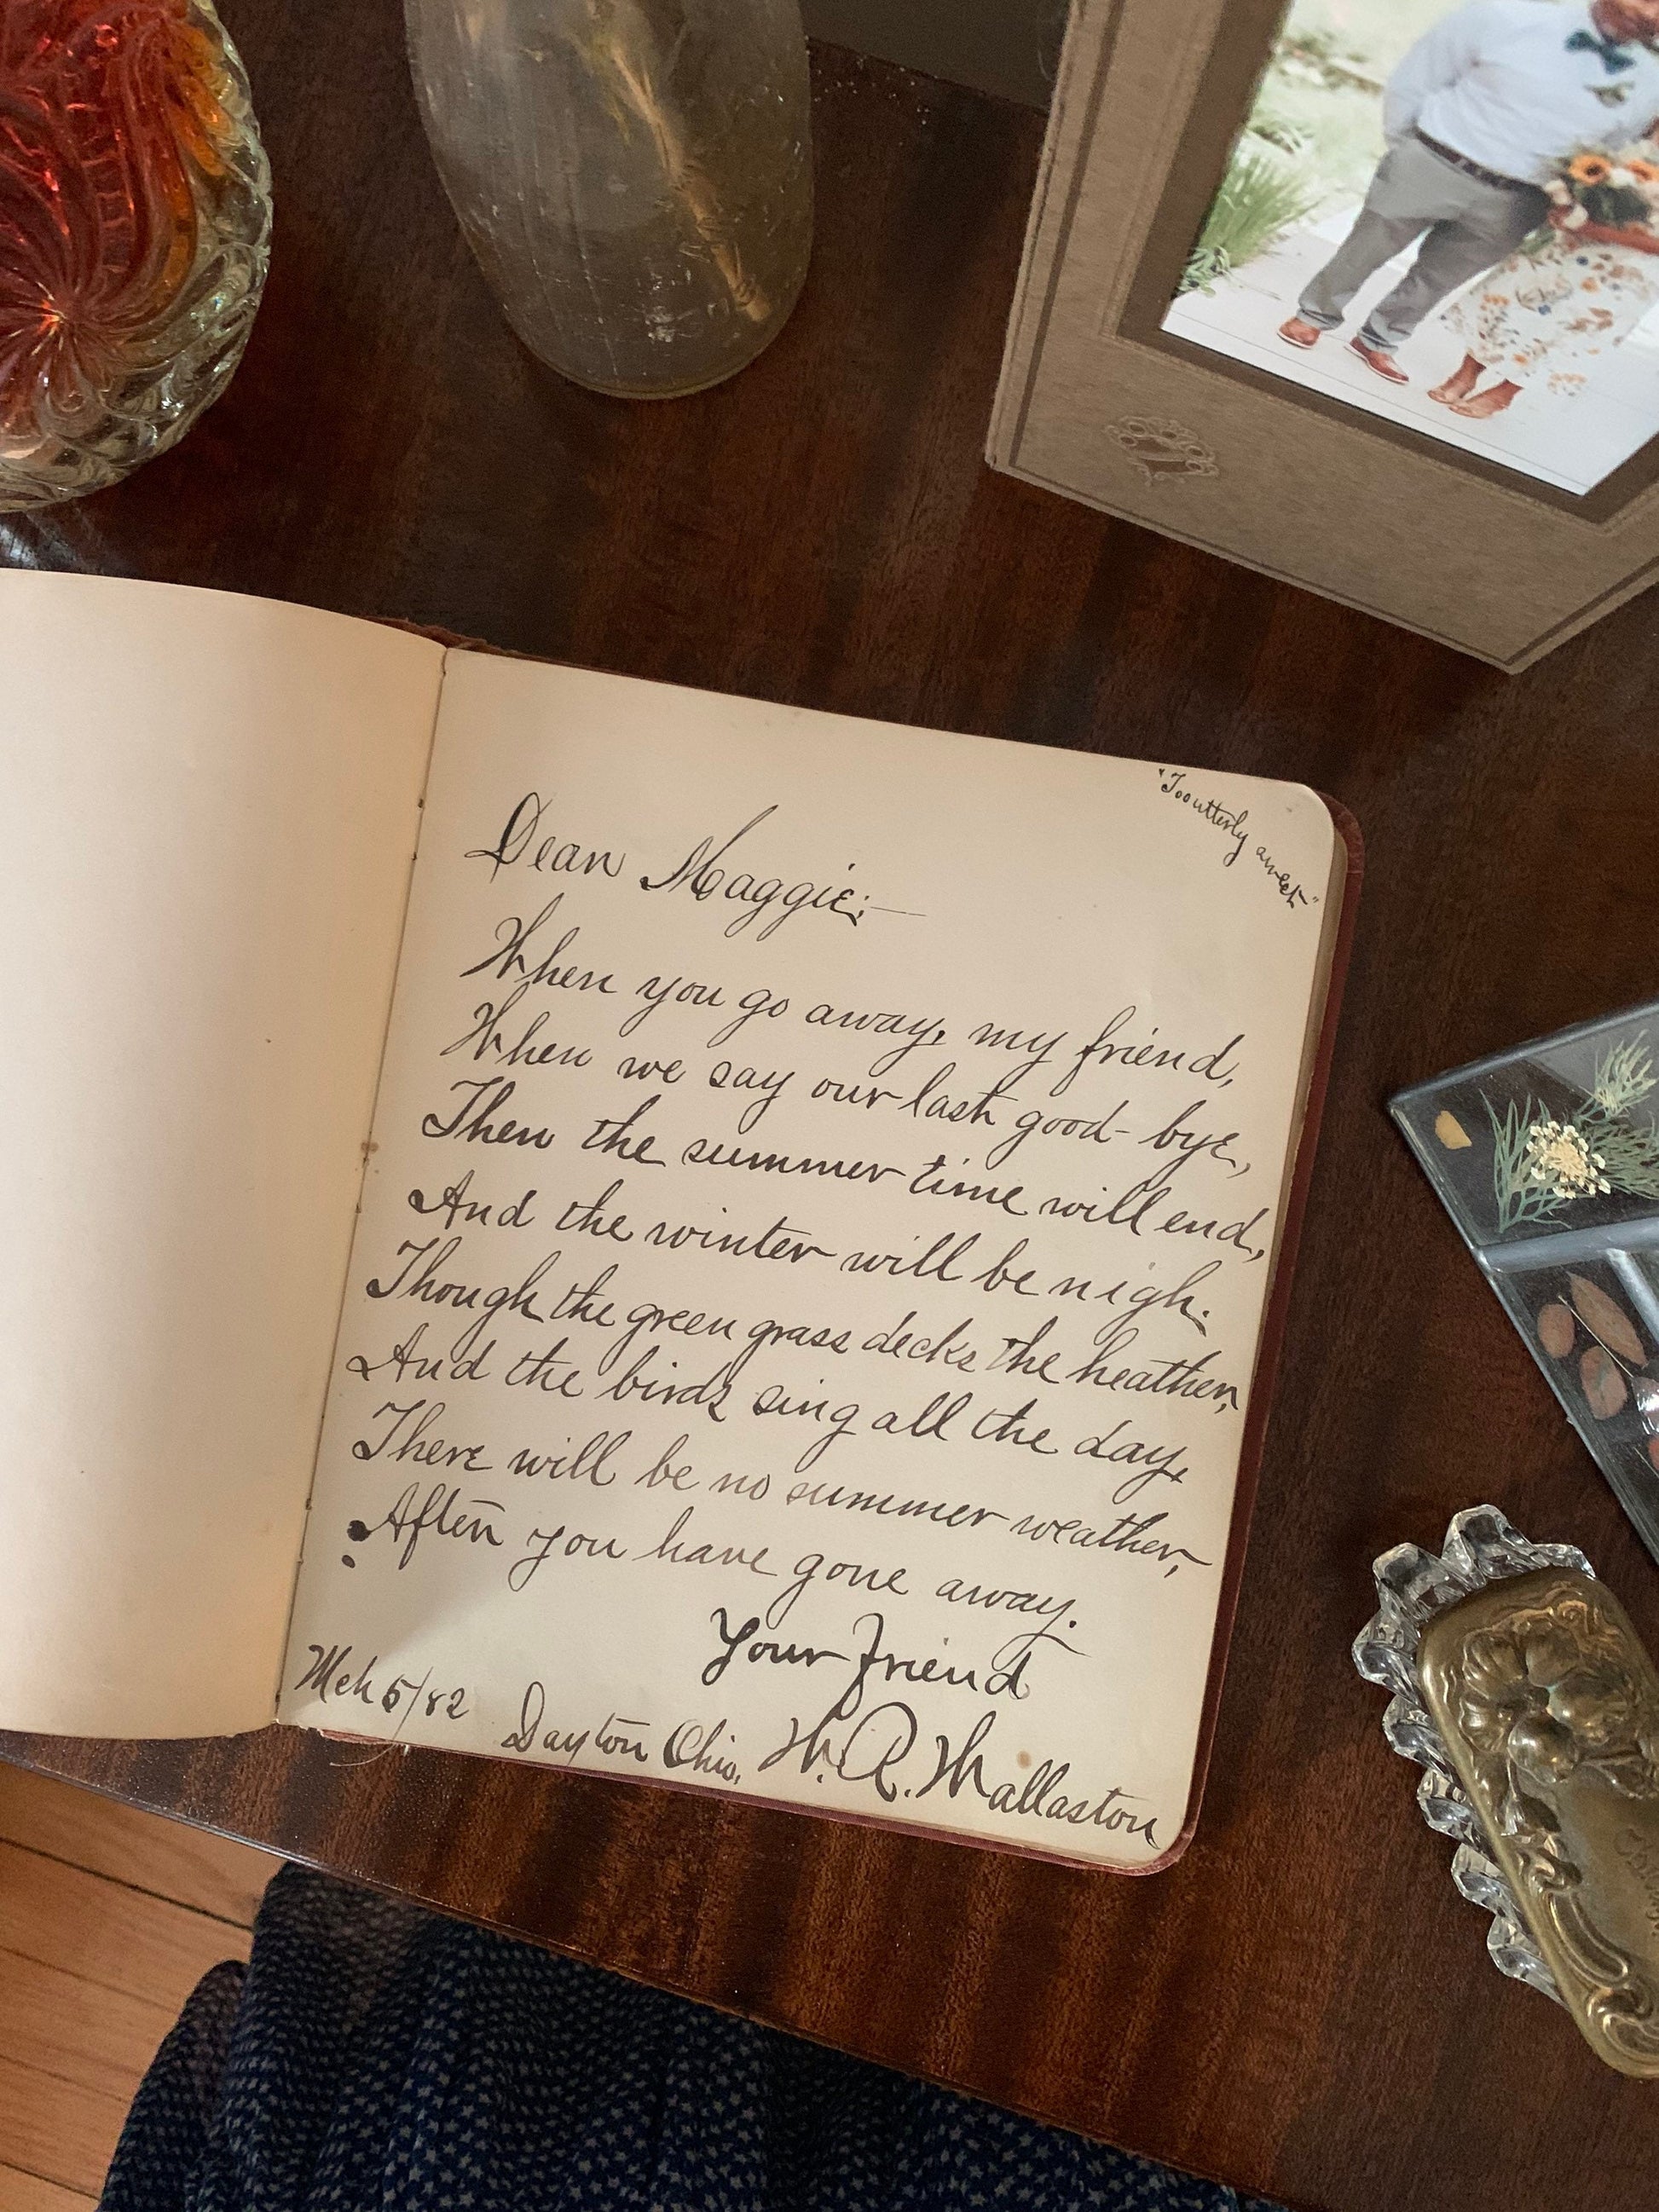 "Too utterly sweet"
Dear Maggie;—
When you go away, my friend,
When we say our last good-bye,
Then the summer time will end,
And the winter will be nigh.
Though the green grass decks the heather,
And the birds sing all the day,
There will be no summer weather,
After you have gone away.
Your friend
Mch 5/82 Dayton Ohio, W. R. Wallaston